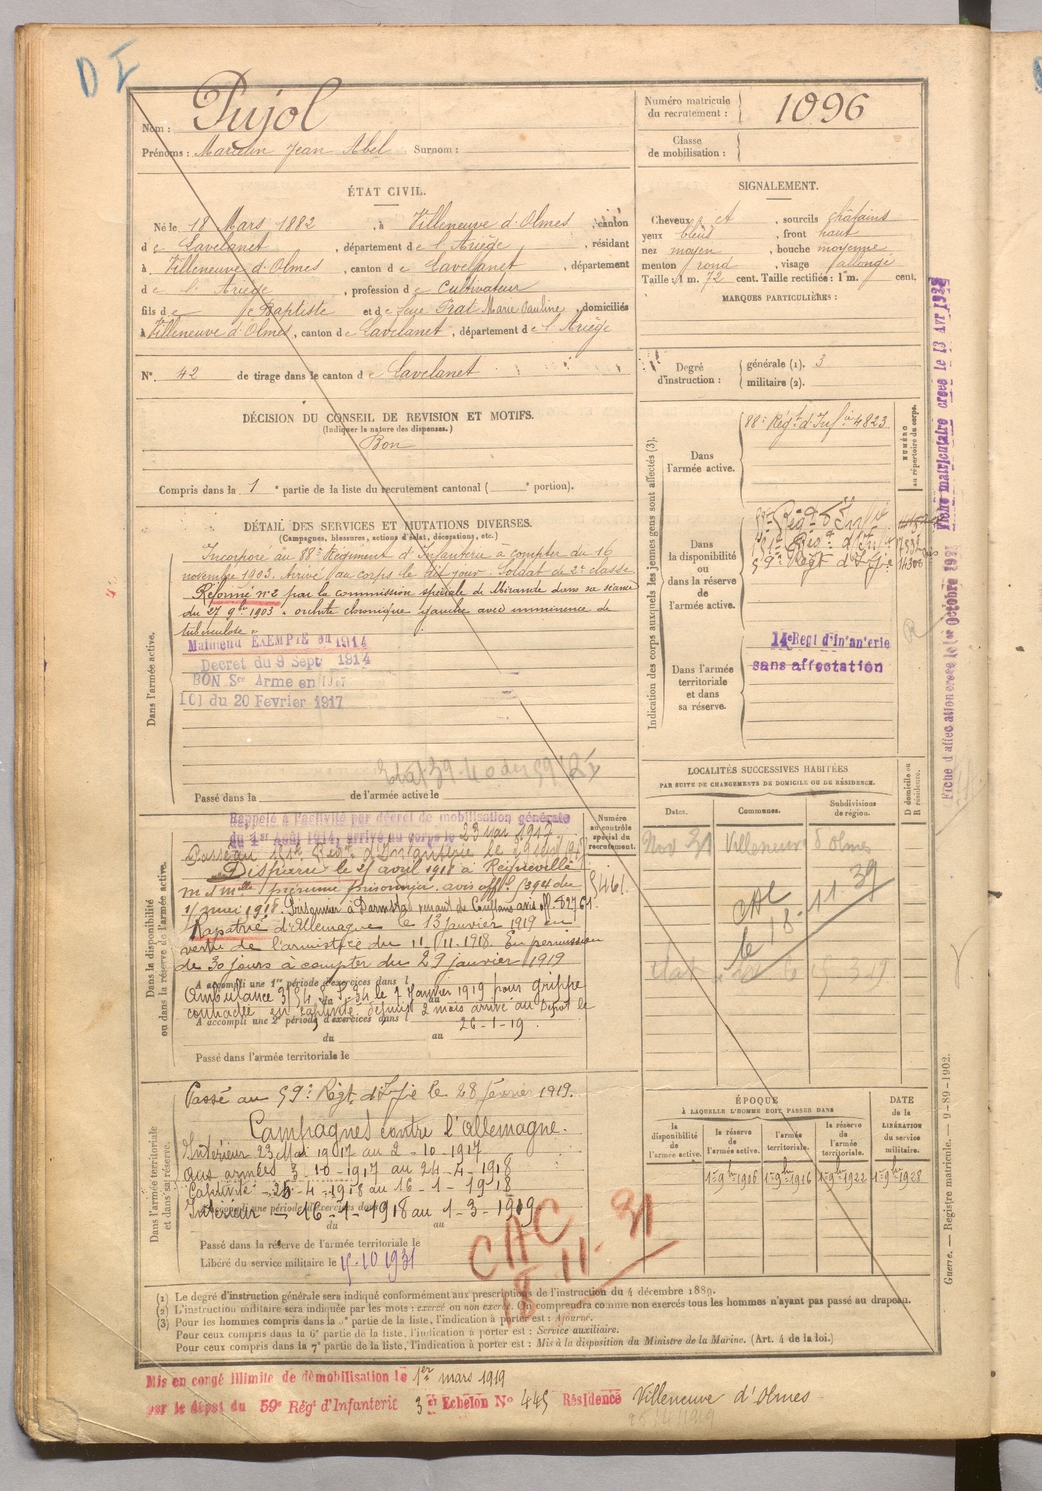 D I
Nom : Pujol
Prénoms : Marcelin Jean Abel Surnom :
Numéro matricule du recrutement : 1096
Classe de mobilisation :
ÉTAT CIVIL.
Né le 18 Mars 1882, à Villeneuve d'Olmes, canton
de Lavelanet, département de l'Ariège, résidant
à Villeneuve d'Olmes, canton de Lavelanet, département
de l'Ariège, profession de Cultivateur
fils de Jn Baptiste et de feue Prat Marie Pauline, domiciliés
à Villeneuve d'Olmes, canton de Lavelanet, département de l'Ariège
N° 42 de tirage dans le canton de Lavelanet
SIGNALEMENT.
Cheveux et, sourcils châtains
yeux bleus, front haut
nez moyen, bouche moyenne
menton rond, visage allongé
Taille : 1 m. 72 cent. Taille rectifiée : 1 m. cent.
MARQUES PARTICULIÈRES :
Degré d'instruction :
générale (1). 3
militaire (2).
DÉCISION DU CONSEIL DE REVISION ET MOTIFS.
(Indiquer la nature des dispenses.)
Bon
Compris dans la 1e partie de la liste du recrutement cantonal ( e portion).
DÉTAIL DES SERVICES ET MUTATIONS DIVERSES.
(Campagnes, blessures, actions d'éclat, décorations, etc.)
Dans l'armée active.
Incorporé au 88e Régiment d'Infanterie à compter du 16
novembre 1903. Arrivé au corps le dit jour. Soldat de 2e classe
Réformé n°2 par la commission spéciale de Mirande dans sa séance
du 27 9bre 1903. orchite chronique gauche avec imminence de
tuberculose.
Maintenu EXEMPTÉ en 1914
Décret du 9 Sept 1914
BON Sce Armé en 1917
loi du 20 Février 1917
Passé dans la de l'armée active le
Indication des corps auxquels les jeunes gens sont affectés (3).
NUMÉRO au répertoire du corps.
Dans l'armée active.
88e Régt d'Inf ie 4823
Dans la disponibilité ou dans la réserve de l'armée active.
59e Régt d'Inf ie
Dans l'armée territoriale et dans sa réserve.
14e Regt d'Infanterie
sans affectation
Fiche matriculaire créée le 13 Avr
Fiche d'affectation créée le 1er Octobre
LOCALITÉS SUCCESSIVES HABITÉES
PAR SUITE DE CHANGEMENTS DE DOMICILE OU DE RÉSIDENCE.
Dates. Communes. Subdivisions de région. D domicile ou R résidence.
Nov 31 Villeneuve d'Olmes
CAC
le 18.11.39
Dans la disponibilité ou dans la réserve de l'armée active.
Numéro au contrôle spécial du recrutement.
Rappelé à l'activité par décret de mobilisation générale
du 1er Août 1914, arrivé au corps le 23 mai 1917
Disparu le 25 avril 1918 à
présumé prisonnier. avis offel
Rapatrié d'Allemagne le 13 janvier 1919 en
vertu de l'armistice du 11.11.1918. En permission
de 30 jours à compter du 29 janvier 1919
A accompli une 1re période d'exercices dans l
Ambulance 3/54 le 7 Janvier 1919 pour grippe
contractée en captivité depuis 2 mois arrivé au Dépôt le
A accompli une 2e période d'exercices dans l
26-1-19.
du au
Passé dans l'armée territoriale le
Dans l'armée territoriale et dans sa réserve.
Passé au 59e Régt d'Infie le 28 février 1919.
Campagnes contre l'Allemagne.
Intérieur 23 Mai 1917 au 2-10-1917
Aux armées 3-10-1917 au 24-4-1918
Captivité 25-4-1918 au 16-1-1918
Intérieur 16-1-1918 au 1-3-1919
du au
Passé dans la réserve de l'armée territoriale le
Libéré du service militaire le 15-10 1931
CAC
18 11. 31
ÉPOQUE
À LAQUELLE L'HOMME DOIT PASSER DANS
DATE de la LIBÉRATION du service militaire.
la disponibilité de l'armée active.
la réserve de l'armée active. 1er 9bre 1906
l'armée territoriale. 1er 9bre 1916
la réserve de l'armée territoriale. 1er 9bre 1922
1er 9bre 1928
(1) Le degré d'instruction générale sera indiqué conformément aux prescriptions de l'instruction du 4 décembre 1889.
(2) L'instruction militaire sera indiquée par les mots : exercé ou non exercé. On comprendra comme non exercés tous les hommes n'ayant pas passé au drapeau.
(3) Pour les hommes compris dans la 5e partie de la liste, l'indication à porter est : Ajourné.
Pour ceux compris dans la 6e partie de la liste, l'indication à porter est : Service auxiliaire.
Pour ceux compris dans la 7e partie de la liste, l'indication à porter est : Mis à la disposition du Ministre de la Marine. (Art. 4 de la loi.)
Guerre. — Registre matricule. — 9-89-1902.
Mis en congé illimité de démobilisation le 1er mars 1919
par le dépôt du 59e Régt d'Infanterie 3e Echelon N° 445 Résidence Villeneuve d'Olmes